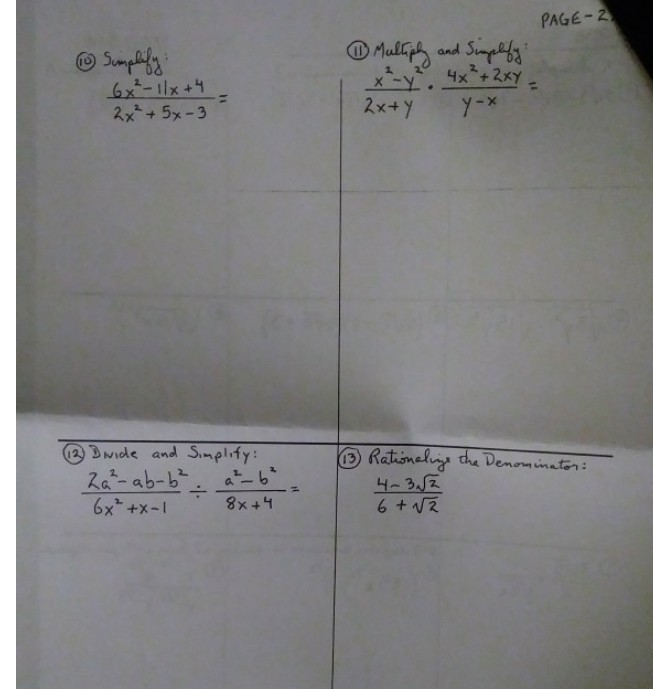 PAGE-2
⑩ Simplify:
6x²-11x+4
2x²+5x-3 =
⑪ Multiply and Simplify:
x²-y² · 4x²+2xy =
2x+y y-x
⑫ Divide and Simplify:
2a²-ab-b² ÷ a²-b² =
6x²+x-1 8x+4
⑬ Rationalize the Denominator:
4-3√2
6+√2